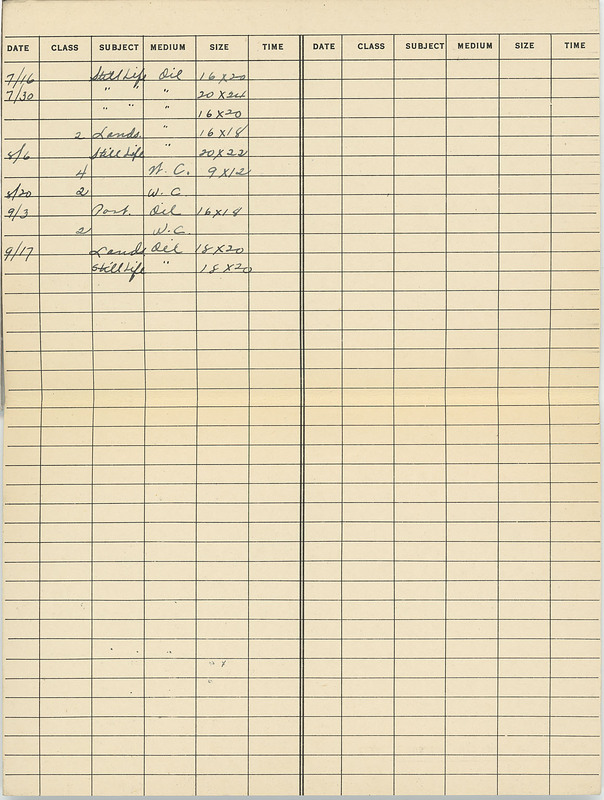 DATE CLASS SUBJECT MEDIUM SIZE TIME DATE CLASS SUBJECT MEDIUM SIZE TIME
7/16 Still Life Oil 16 x 20
7/30 " " " 20 x 24
" " " 16 x 20
2 Lands. " 16 x 18
8/6 Still Life 20 x 22
4 W. C. 9 x 12
8/20 2 W. C.
9/3 Port. Oil 16 x 18
2 W. C.
9/17 Lands Oil 18 x 20
Still Life " 18 x 20